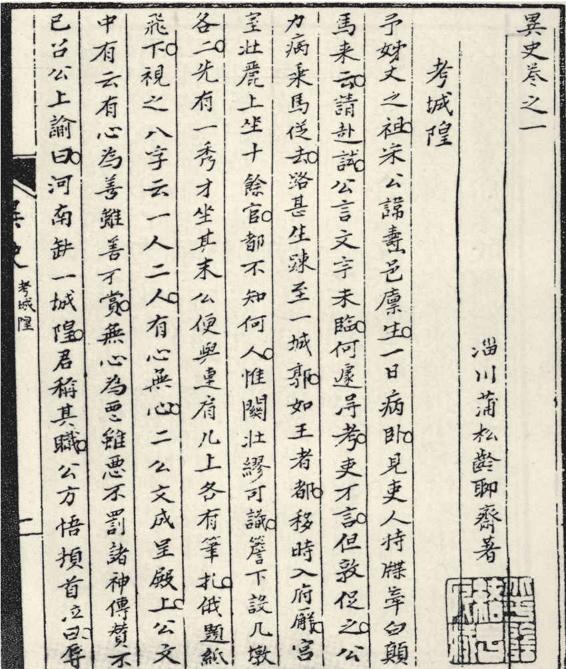 異史卷之一
淄川蒲松齡聊齋著
考城隍
予姊丈之祖宋公諱燾邑廩生一日病卧見吏人持牒牽白顛
馬来云請赴試公言文宗未臨何遽得考吏不言但敦促之公
力病乘馬從去路甚生踈至一城郭如王者都移時入府廨宮
室壯麗上坐十餘官都不知何人惟關壯繆可識簷下設几墩
各二先有一秀才坐其末公便與連肩几上各有筆札俄題紙
飛下視之八字云一人二人有心無心二公文成呈殿上公文
中有云有心為善雖善不賞無心為惡雖惡不罰諸神傳贊不
已召公上諭曰河南缺一城隍君稱其職公方悟頓首泣曰辱
異史
考城隍
二